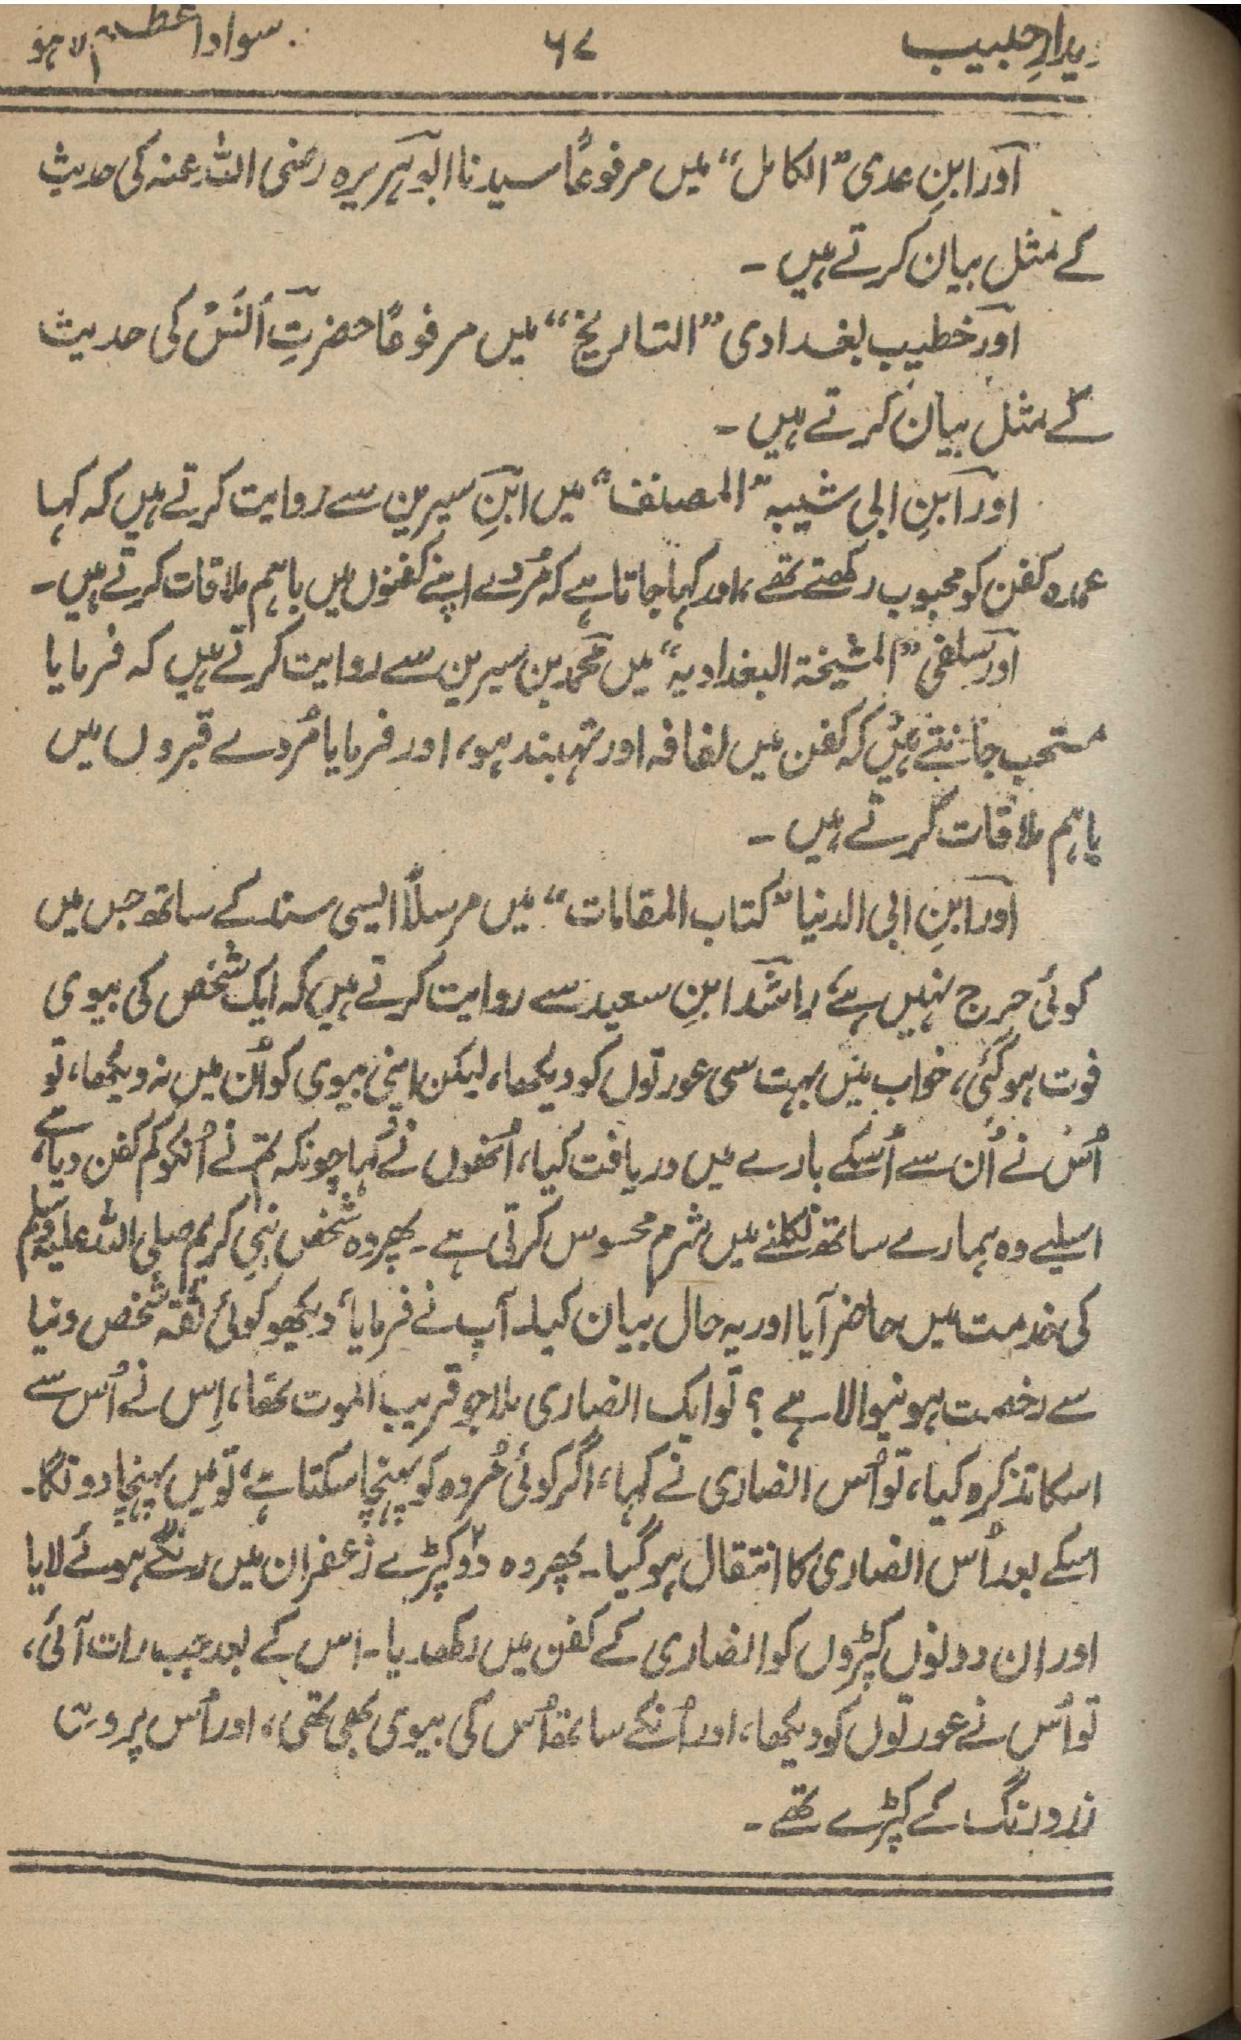 دیدارِ حبیب ۶۷ سوادِ اعظم لاہو
اور ابنِ عدی ”الکامل“ میں مرفوعًا سیدنا ابو ہریرہ رضی اللہ عنہ کی حدیث
کے مثل بیان کرتے ہیں ۔
اور خطیب بغدادی ”التاریخ“ میں مرفوعًا حضرتِ اَنَسْ کی حدیث
کے مثل بیان کرتے ہیں ۔
اور ابنِ ابی شیبہ ”المصنف“ میں ابنِ سیرین سے روایت کرتے ہیں کہ کہا
عمدہ کفن کو محبوب رکھتے تھے، اور کہا جاتا ہے کہ مُردے اپنے کفنوں میں باہم ملاقات کرتے ہیں ۔
اور سلفی ”المشیخۃ البغدادیہ“ میں محمد بن سیرین سے روایت کرتے ہیں کہ فرمایا
مستحب جانتے ہیں کہ کفن میں لفافہ اور تہبند ہو، اور فرمایا مُردے قبروں میں
باہم ملاقات کرتے ہیں ۔
اور ابنِ ابی الدنیا ”کتاب المقامات“ میں مرسلاً ایسی سند کے ساتھ جس میں
کوئی حرج نہیں ہے، راشد ابنِ سعید سے روایت کرتے ہیں کہ ایک شخص کی بیوی
فوت ہو گئی، خواب میں بہت سی عورتوں کو دیکھا، لیکن اپنی بیوی کو اُن میں نہ دیکھا، تو
اُس نے اُن سے اُسکے بارے میں دریافت کیا، اُنھوں نے کہا چونکہ تم نے اُنکو کم کفن دیا ہے،
اسلیے وہ ہمارے ساتھ نکلنے میں شرم محسوس کرتی ہے ۔ پھر وہ شخص نبیِ کریم صلی اللہ علیہ وسلم
کی خدمت میں حاضر آیا اور یہ حال بیان کیا۔ آپ نے فرمایا، دیکھو کوئی ثقہ شخص دنیا
سے رخصت ہونیوالا ہے ؟ تو ایک انصاری ملا جو قریب الموت تھا، اِس نے اُس سے
اسکا تذکرہ کیا، تو اُس انصاری نے کہا، اگر کوئی مُردہ کو پہنچا سکتا ہے، تو میں پہنچا دونگا۔
اسکے بعد اُس انصاری کا انتقال ہو گیا ۔ پھر وہ دو۲ کپڑے زعفران میں رنگے ہوئے لایا
اور ان دونوں کپڑوں کو انصاری کے کفن میں رکھدیا ۔ اس کے بعد جب رات آئی،
تو اُس نے عورتوں کو دیکھا، اور اُنکے ساتھ اُس کی بیوی بھی تھی، اور اُس پر وہی
زرد رنگ کے کپڑے تھے ۔